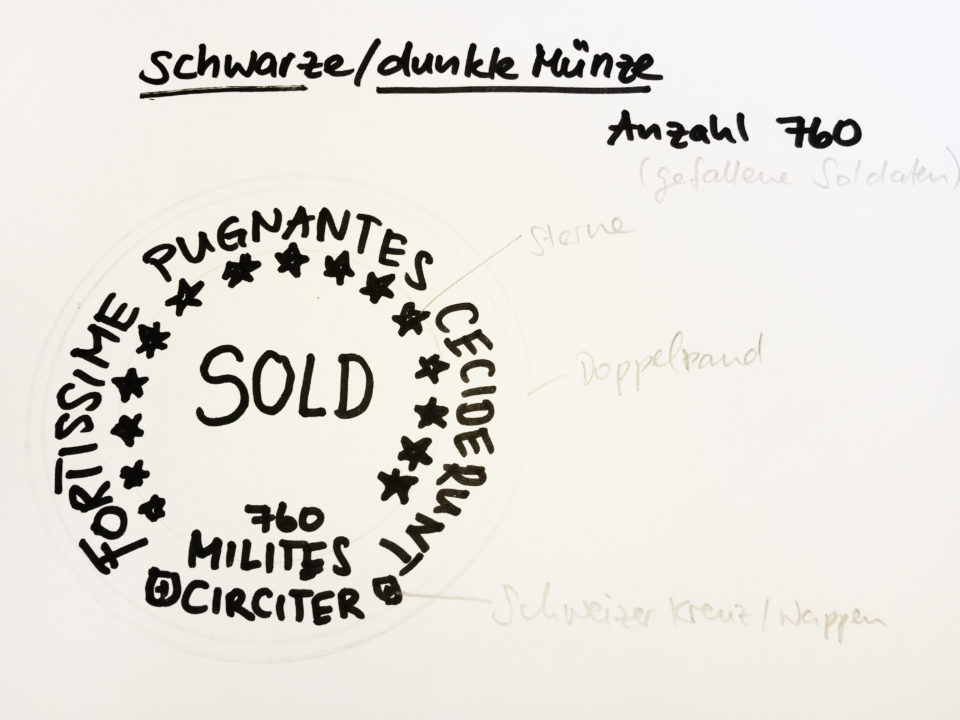 schwarze/dunkle Münze
Anzahl 760
(gefallene Soldaten)
Sterne
FORTISSIME PUGNANTES CECIDERUNT
Doppelrand
SOLD
760
MILITES
CIRCITER
Schweizer Kreuz/Wappen